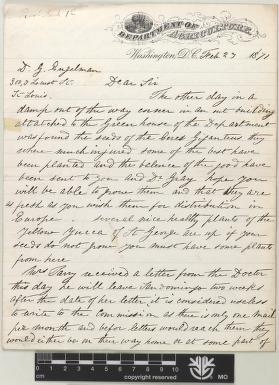 DEPARTMENT OF AGRICULTURE.
Washington, D.C. Feb 27 1871
Dr G. Engelman
3003 Locust St Dear Sir
St Louis. The other day in a
damp out of the way corner in an out building
attatched to the Green house of the Department
was found the seeds of the Cereus Giganteus they
where much injured some of the best have
been planted and the balance of the good have
been sent to you and Dr Gray hope you
will be able to grow them and that they are
as fresh as you wish them for distribution in
Europe. several nice healthy plants of the
Yellow Yucca of St George are up if your
seeds do not grow you must have some plants
from here
Mrs Parry received a letter from the Doctor
this day he will leave San domingo two weeks
after the date of her letter, it is considered useless
to write to the Commission as there is only one mail
per month and befor letters would reach them they
would either be on their way home or at some part of
0 1 2 3 4 5 6 7 8 9 10
MO